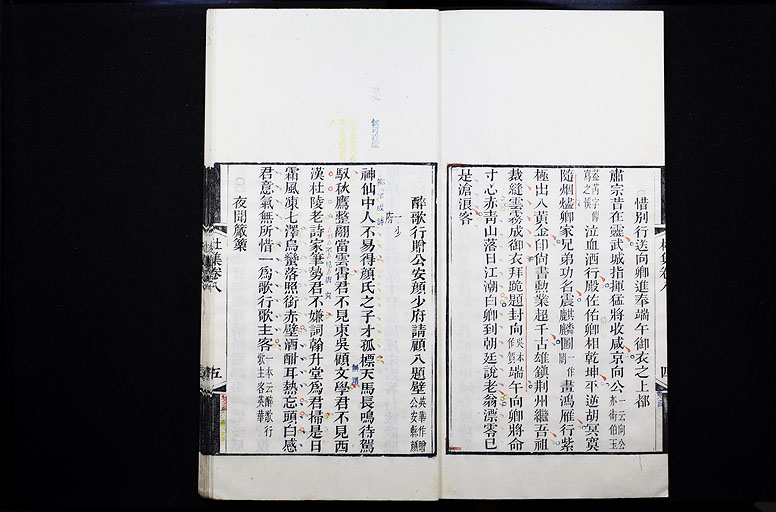 惜別行送向卿進奉端午御衣之上都
肅宗昔在靈武城指揮猛將收咸京向公
泣血洒行殿佐佑卿相乾坤平逆胡冥寞
隨烟燼卿家兄弟功名震麒麟圖畫鴻雁行紫
極出入黃金印尚書勳業超千古雄鎮荆州繼吾祖
裁縫雲霧成御衣拜跪題封向端午向卿將命
寸心赤青山落日江潮白卿到朝廷說老翁漂零已
是滄浪客
醉歌行贈公安顏少府請顧八題壁
神仙中人不易得顏氏之子才孤標天馬長鳴待駕
馭秋鷹整翮當雲霄君不見東吳顧文學君不見西
漢杜陵老詩家筆勢君不嫌詞翰升堂爲君掃是日
霜風凍七澤烏蠻落照銜赤壁酒酣耳熱忘頭白感
君意氣無所惜一爲歌行歌主客一本云醉歌行歌主客
夜聞觱篥
杜集卷八
五